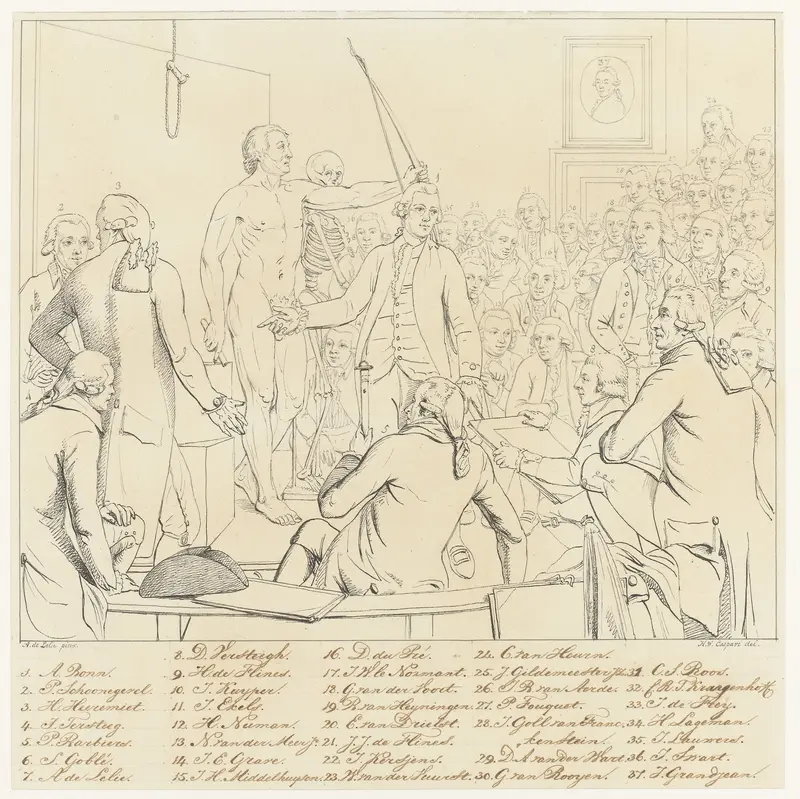 A. de Lelie pinx.
H.W. Caspari del.
1. A Bonn.
2. P. Schoonegevel.
3. H. Hieremiet
4. J. Tersteeg.
5. P. Barbiers.
6. S. Goblé.
7. A de Lelie.
8. D. Versteegh.
9. H. de Flines.
10. J. Kuyper.
11. J. Ekels.
12. H. Numan.
13. N. van der Meer Jr.
14. J. E. Grave.
15. J. H. Middelhuysen.
16. D. du Pré.
17. J. W le Normant.
18. G. van der Voort.
19. R. van Heyningen.
20. E. van Drielst.
21. J. J. de Flines.
22. J. Kerstens.
23. W. van der Vuurst.
24. C. van Heurn.
25. J. Gildemeester Jz.
26. J. R. van Aorde.
27. P. Fouquet.
28. J. Goll van Franc=
kenstein.
29. D. A van der Wart.
30. G. van Rooyen.
31. C. S. Roos.
32. C. R. T. Krayenhoff
33. J. de Fley.
34. H. Lageman.
35. J. Lauwers.
36. J. Smart.
37. J. Grandjean.